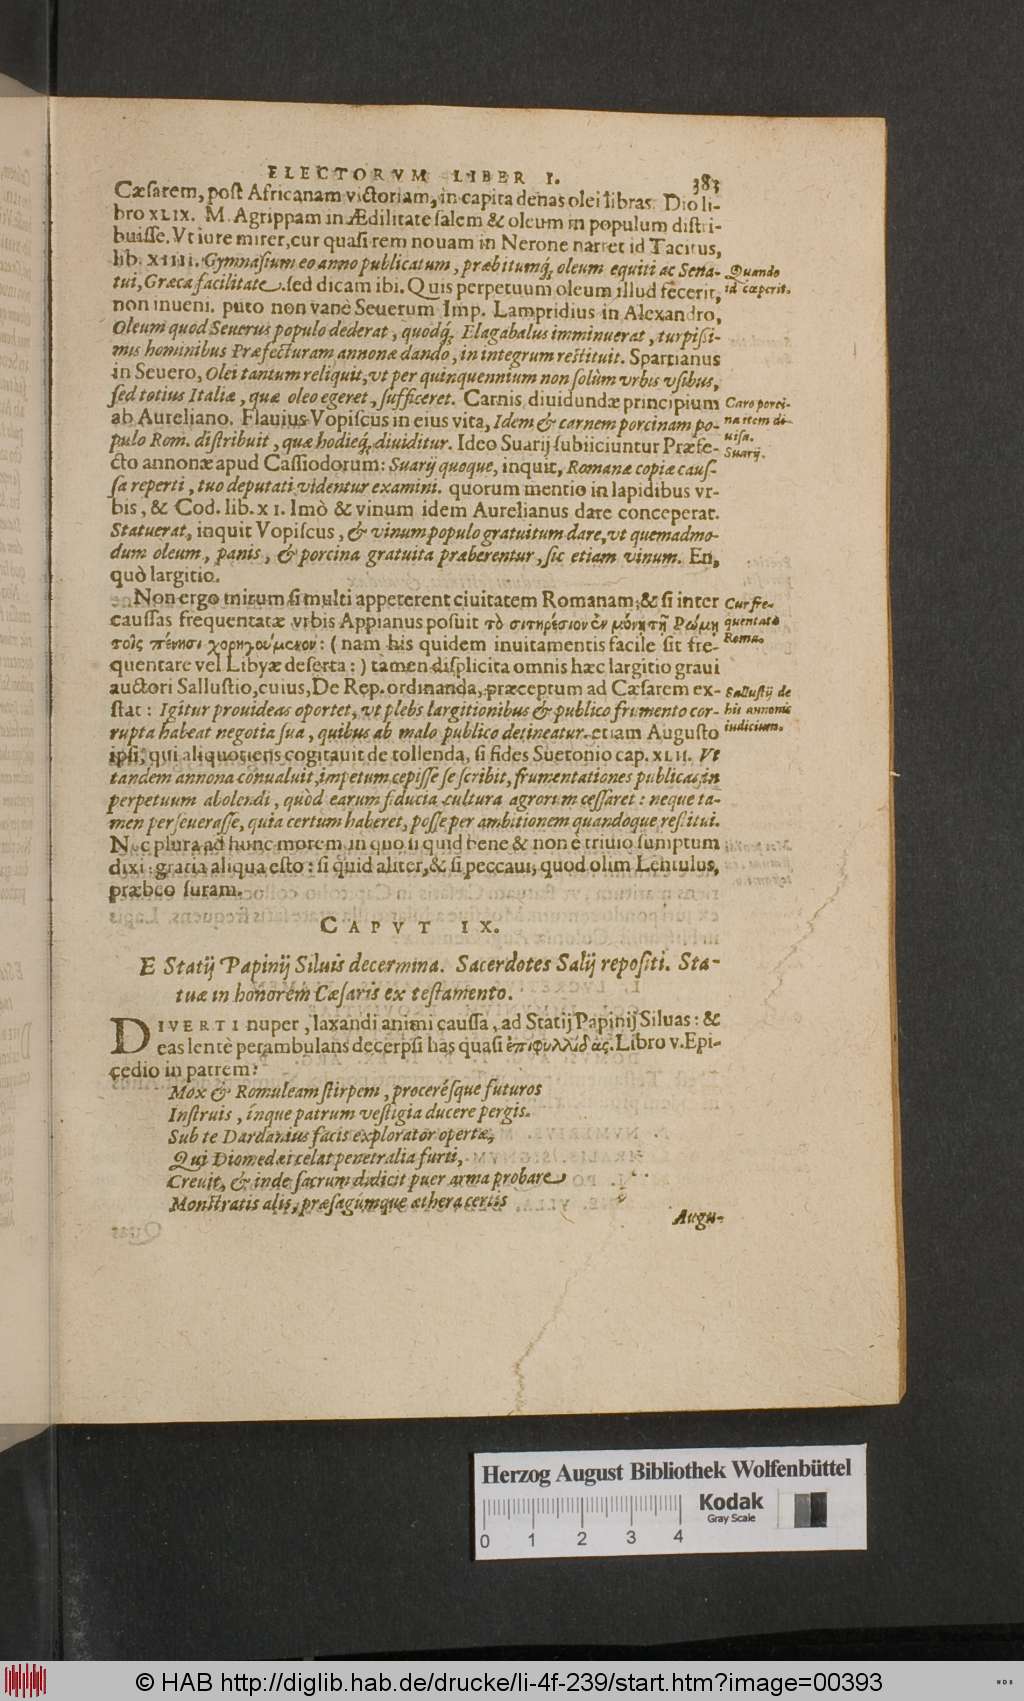 ELECTORVM LIBER I. 383
Cæsarem, post Africanam victoriam, in capita denas olei libras. Dio li-
bro XLIX. M. Agrippam in Ædilitate salem & oleum in populum distri-
buisse. Vt iure mirer, cur quasi rem nouam in Nerone narret id Tacitus,
lib. XIIII. Gymnasium eo anno publicatum, præbitumq́; oleum equiti ac Sena-
tui, Græca facilitate. sed dicam ibi. Quis perpetuum oleum illud fecerit,
non inueni. puto non vanè Seuerum Imp. Lampridius in Alexandro,
Oleum quod Seuerus populo dederat, quodq́; Elagabalus imminuerat, turpissi-
mis hominibus Præfecturam annonæ dando, in integrum restituit. Spartianus
in Seuero, Olei tantum reliquit, vt per quinquennium non solùm vrbis vsibus,
sed totius Italiæ, quæ oleo egeret, sufficeret. Carnis diuidundæ principium
ab Aureliano. Flauius Vopiscus in eius vita, Idem & carnem porcinam po-
pulo Rom. distribuit, quæ hodieq́; diuiditur. Ideo Suarij subiiciuntur Præfe-
cto annonæ apud Cassiodorum: Suarij quoque, inquit, Romanæ copiæ caus-
sa reperti, tuo deputati videntur examini. quorum mentio in lapidibus vr-
bis, & Cod. lib. XI. Imò & vinum idem Aurelianus dare conceperat.
Statuerat, inquit Vopiscus, & vinum populo gratuitum dare, vt quemadmo-
dum oleum, panis, & porcina gratuita præberentur, sic etiam vinum. En,
quò largitio.
Non ergo mirum si multi appeterent ciuitatem Romanam; & si inter
caussas frequentatæ vrbis Appianus posuit τὸ σιτηρέσιον ἐν μόνῃ τῇ Ῥώμῃ
τοῖς πένησι χορηγούμενον: (nam his quidem inuitamentis facile sit fre-
quentare vel Libyæ deserta:) tamen displicita omnis hæc largitio graui
auctori Sallustio, cuius, De Rep. ordinanda, præceptum ad Cæsarem ex-
stat: Igitur prouideas oportet, vt plebs largitionibus & publico frumento cor-
rupta habeat negotia sua, quibus ab malo publico detineatur. etiam Augusto
ipsi, qui aliquotiens cogitauit de tollenda, si fides Suetonio cap. XLII. Vt
tandem annona conualuit, impetum cepisse se scribit, frumentationes publicas in
perpetuum abolendi, quòd earum fiducia cultura agrorum cessaret: neque ta-
men perseuerasse, quia certum haberet, posse per ambitionem quandoque restitui.
Nec plura ad hunc morem. in quo si quid bene & non è triuio sumptum
dixi: gratia aliqua esto: si quid aliter, & si peccaui, quod olim Lentulus,
præbeo suram.
Quando
id cœperit.
Caro porci-
na item di-
uisa.
Suarij.
Cur fre-
quentata
Roma.
Sallustij de
his annonis
iudicium.
CAPVT IX.
E Statij Papinij Siluis decermina. Sacerdotes Salij repositi. Sta-
tuæ in honorem Cæsaris ex testamento.
DIVERTI nuper, laxandi animi caussa, ad Statij Papinij Siluas: &
eas lentè perambulans decerpsi has quasi ἐπιφυλλίδας. Libro V. Epi-
cedio in patrem:
Mox & Romuleam stirpem, procerésque futuros
Instruis, ínque patrum vestigia ducere pergis.
Sub te Dardanius facis explorator opertæ,
Qui Diomedæi celat penetralia furti,
Creuit, & inde sacrum didicit puer arma probare
Monstratis alis, præsagúmque æthera certis
Augu-
Herzog August Bibliothek Wolfenbüttel
Kodak
Gray Scale
0 1 2 3 4
© HAB http://diglib.hab.de/drucke/li-4f-239/start.htm?image=00393